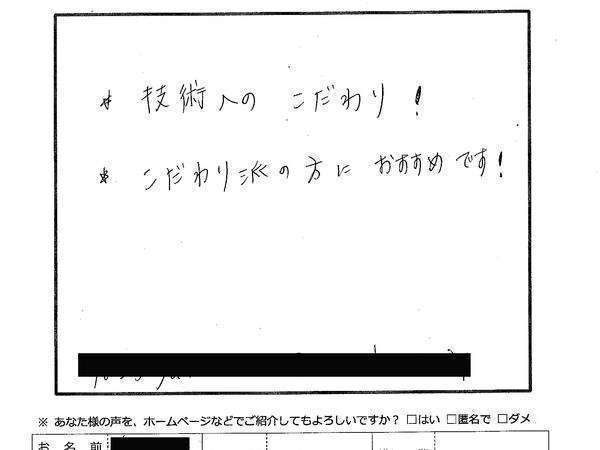 * 技術への こだわり!
* こだわり派の方に おすすめです!
※ あなた様の声を、ホームページなどでご紹介してもよろしいですか? □はい □匿名で □ダメ
お名前